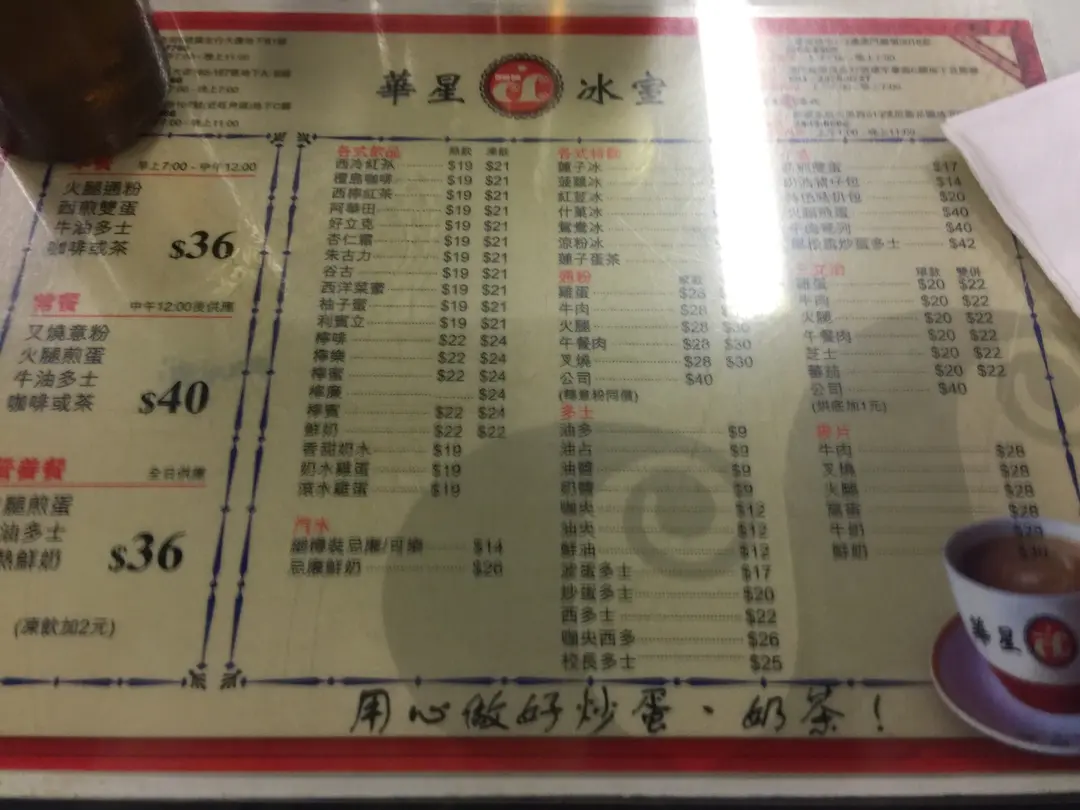 華星 冰室
早上7:00 - 中午12:00
火腿通粉
西煎雙蛋
牛油多士
咖啡或茶
$36
常餐 中午12:00後供應
叉燒意粉
火腿煎蛋
牛油多士
咖啡或茶
$40
營養餐 全日供應
腿煎蛋
油多士
熱鮮奶
$36
(凍飲加2元)
各式飲品 熱飲 凍飲
西冷紅茶 $19 $21
檀島咖啡 $19 $21
西檸紅茶 $19 $21
阿華田 $19 $21
好立克 $19 $21
杏仁霜 $19 $21
朱古力 $19 $21
谷古 $19 $21
西洋菜蜜 $19 $21
柚子蜜 $19 $21
利賓立 $19 $21
檸啡 $22 $24
檸樂 $22 $24
檸蜜 $22 $24
檸廉 $24
檸賓 $22 $24
鮮奶 $22 $22
香甜奶水 $19
奶水雞蛋 $19
滾水雞蛋 $19
汽水
樽裝忌廉/可樂 $14
忌廉鮮奶 $26
各式
蓮子冰
菠蘿冰
紅荳冰
什菓冰
鴛鴦冰
涼粉冰
蓮子蛋茶
通粉
雞蛋 $28
牛肉 $28
火腿 $28 $30
午餐肉 $28 $30
叉燒 $28 $30
公司 $40
(轉意粉同價)
多士
油多 $9
油占 $9
油醬 $9
奶醬 $9
咖央 $12
油央 $12
鮮油 $12
滾蛋多士 $17
炒蛋多士 $20
西多士 $22
咖央西多 $26
校長多士 $25
煎雙蛋 $17
仔包 $14
豬扒包 $20
火腿煎蛋 $40
$40
炒蛋多士 $42
單款 雙併
雞蛋 $20 $22
牛肉 $20 $22
火腿 $20 $22
午餐肉 $20 $22
芝士 $20 $22
蕃茄 $20 $22
公司 $40
(烘底加1元)
麥片
牛肉 $28
叉燒 $28
火腿 $28
雞蛋 $28
牛奶
鮮奶
華星
用心做好炒蛋、奶茶！